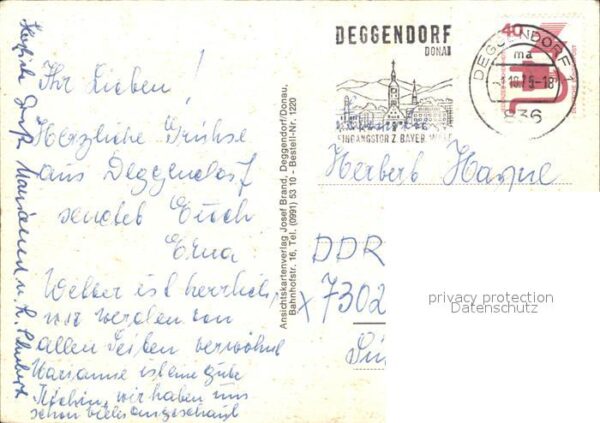 Ihr Lieben!
Herzliche Grühse
aus Deggendorf
sendet Euch
Erna
Wetter ist herrlich,
wir werden von
allen Seiten verwöhnt
Marianne ist eine gute
Köchin, wir haben uns
schon vieles angeschaut
Herzliche Grüße Marianne u.
Ansichtskartenverlag Josef Brand, Deggendorf/Donau,
Bahnhofstr. 16, Tel. (0991) 53 10 - Bestell-Nr. 1220
DEGGENDORF
DONAU
EINGANGSTOR Z. BAYER. WALD
DEGGENDORF 1
ma
836
40
Herbert
DDR
x 7302
privacy protection
Datenschutz